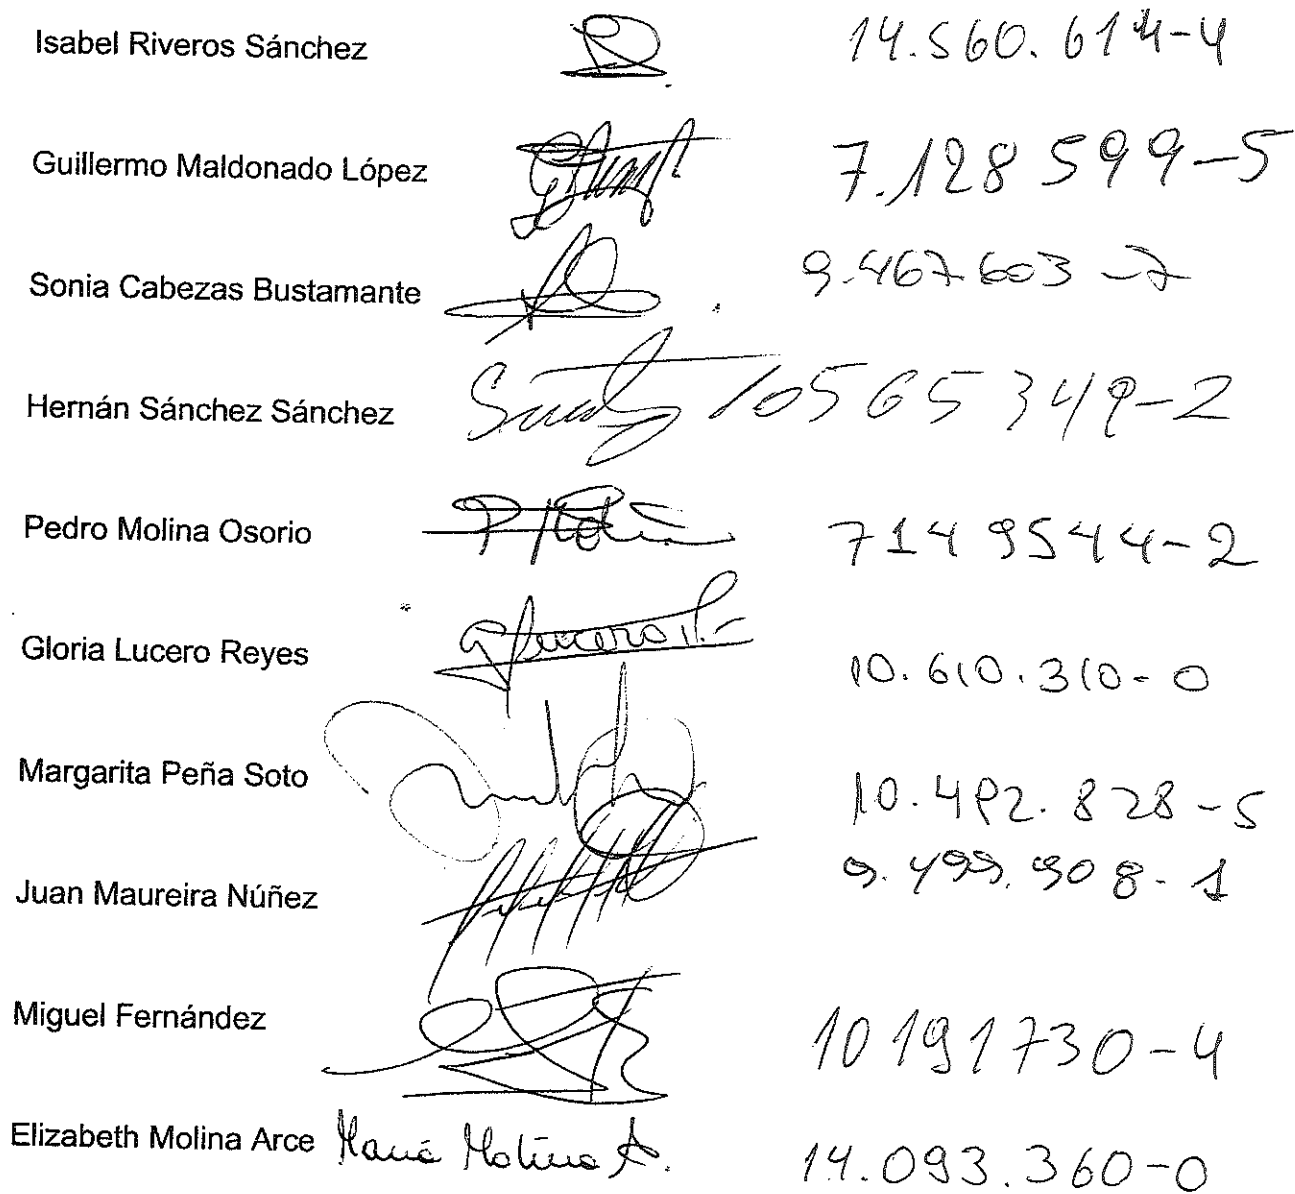 Isabel Riveros Sánchez 14.560.614-4
Guillermo Maldonado López 7.128599-5
Sonia Cabezas Bustamante 9.467603-7
Hernán Sánchez Sánchez 10565349-2
Pedro Molina Osorio P Molina 7149544-2
Gloria Lucero Reyes GLucero R 10.610.310-0
Margarita Peña Soto 10.492.828-5
Juan Maureira Núñez 9.499.908-1
Miguel Fernández 10191730-4
Elizabeth Molina Arce María Molina A. 14.093.360-0